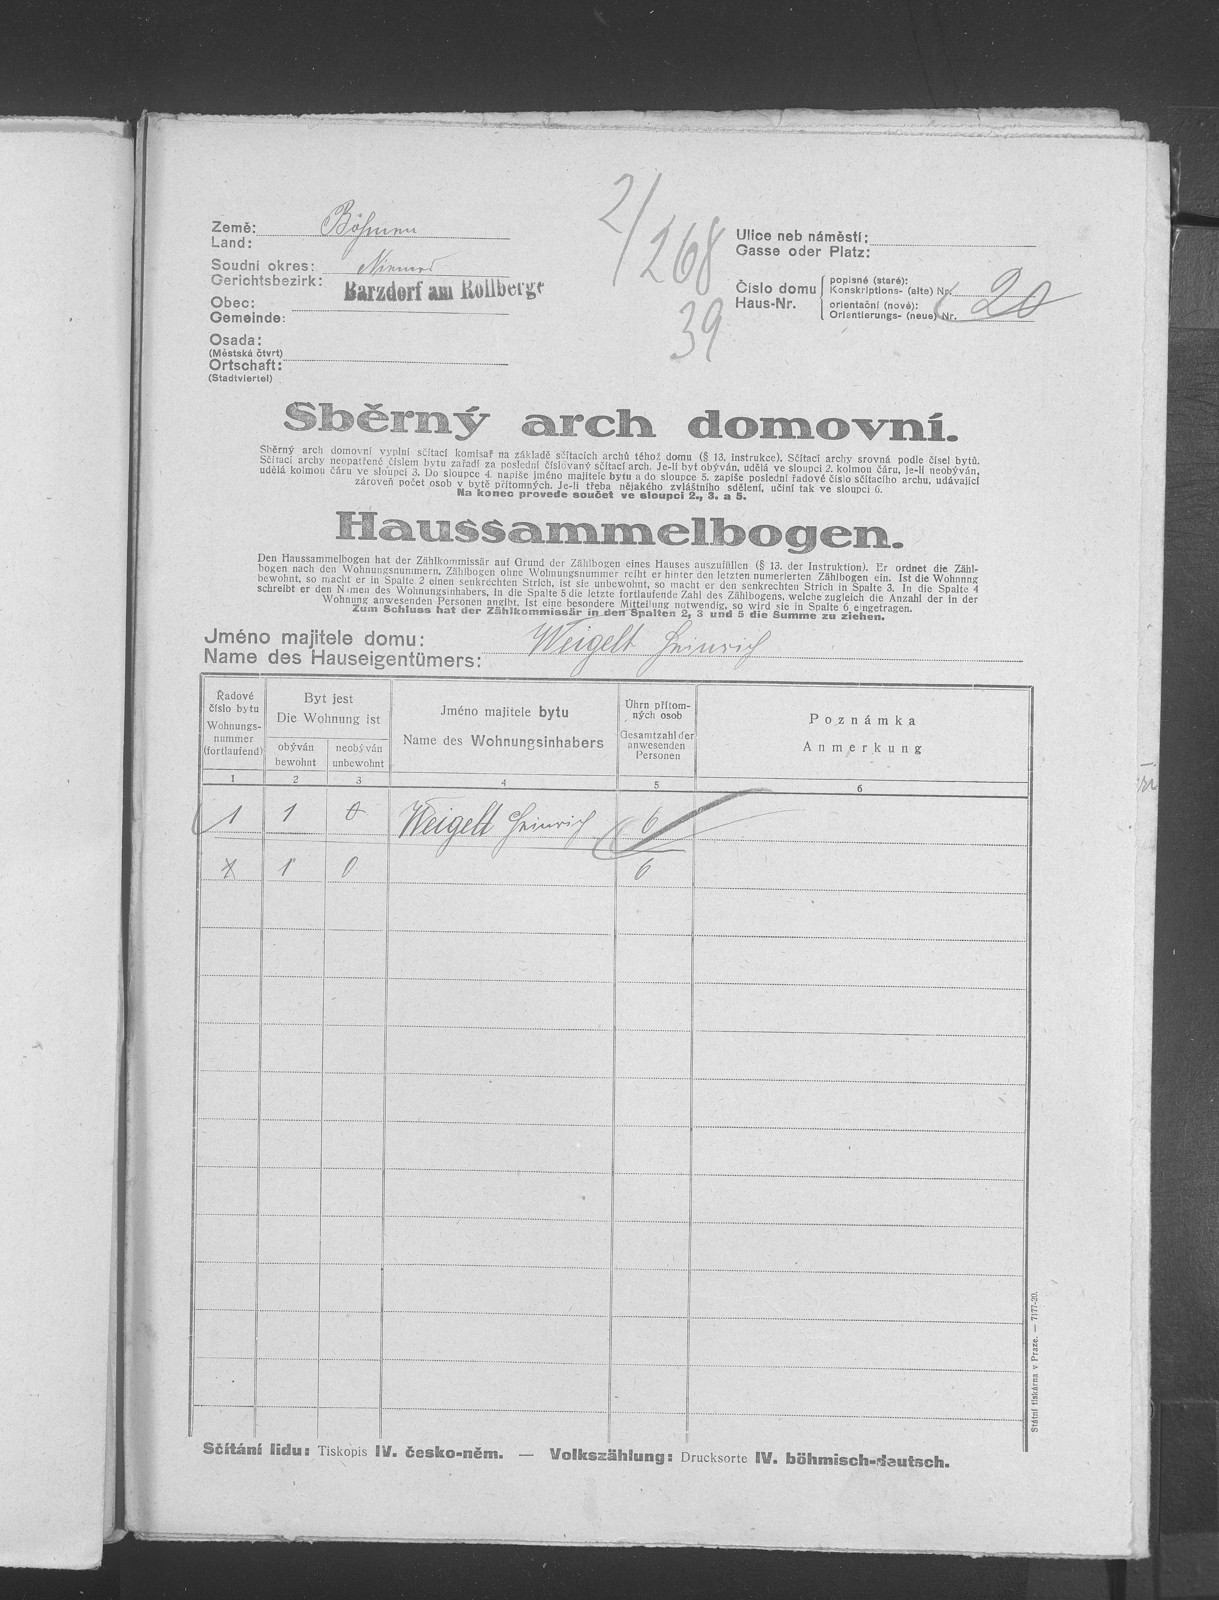 2/268
39
Země: Böhmen
Land:
Soudní okres: Niemes
Gerichtsbezirk:
Barzdorf am Rollberge
Obec:
Gemeinde:
Osada:
(Městská čtvrt)
Ortschaft:
(Stadtviertel)
Ulice neb náměstí:
Gasse oder Platz:
Číslo domu
Haus-Nr.
popisné (staré):
Konskriptions- (alte) Nr.
orientační (nové):
Orientierungs- (neue) Nr.
20
Sběrný arch domovní.
Sběrný arch domovní vyplní sčítací komisař na základě sčítacích archů téhož domu (§ 13. instrukce). Sčítací archy srovná podle čísel bytů.
Sčítací archy neopatřené číslem bytu zařadí za poslední číslovaný sčítací arch. Je-li byt obýván, udělá ve sloupci 2. kolmou čáru, je-li neobýván,
udělá kolmou čáru ve sloupci 3. Do sloupce 4. napíše jméno majitele bytu a do sloupce 5. zapíše poslední řadové číslo sčítacího archu, udávající
zároveň počet osob v bytě přítomných. Je-li třeba nějakého zvláštního sdělení, učiní tak ve sloupci 6.
Na konec provede součet ve sloupci 2., 3. a 5.
Haussammelbogen.
Den Haussammelbogen hat der Zählkommissär auf Grund der Zählbogen eines Hauses auszufüllen (§ 13. der Instruktion). Er ordnet die Zähl-
bogen nach den Wohnungsnummern. Zählbogen ohne Wohnungsnummer reiht er hinter den letzten numerierten Zählbogen ein. Ist die Wohnung
bewohnt, so macht er in Spalte 2 einen senkrechten Strich, ist sie unbewohnt, so macht er den senkrechten Strich in Spalte 3. In die Spalte 4
schreibt er den Namen des Wohnungsinhabers, in die Spalte 5 die letzte fortlaufende Zahl des Zählbogens, welche zugleich die Anzahl der in der
Wohnung anwesenden Personen angibt. Ist eine besondere Mitteilung notwendig, so wird sie in Spalte 6 eingetragen.
Zum Schluss hat der Zählkommissär in den Spalten 2, 3 und 5 die Summe zu ziehen.
Jméno majitele domu: Weigelt Heinrich
Name des Hauseigentümers:
Řadové
číslo bytu
Wohnungs-
nummer
(fortlaufend)
Byt jest
Die Wohnung ist
obýván
bewohnt
neobýván
unbewohnt
Jméno majitele bytu
Name des Wohnungsinhabers
Úhrn přítom-
ných osob
Gesamtzahl der
anwesenden
Personen
Poznámka
Anmerkung
1 2 3 4 5 6
1 1 0 Weigelt Heinrich 6
1 1 0 6
Sčítání lidu: Tiskopis IV. česko-něm. — Volkszählung: Drucksorte IV. böhmisch-deutsch.
Státní tiskárna v Praze. — 7177-20.